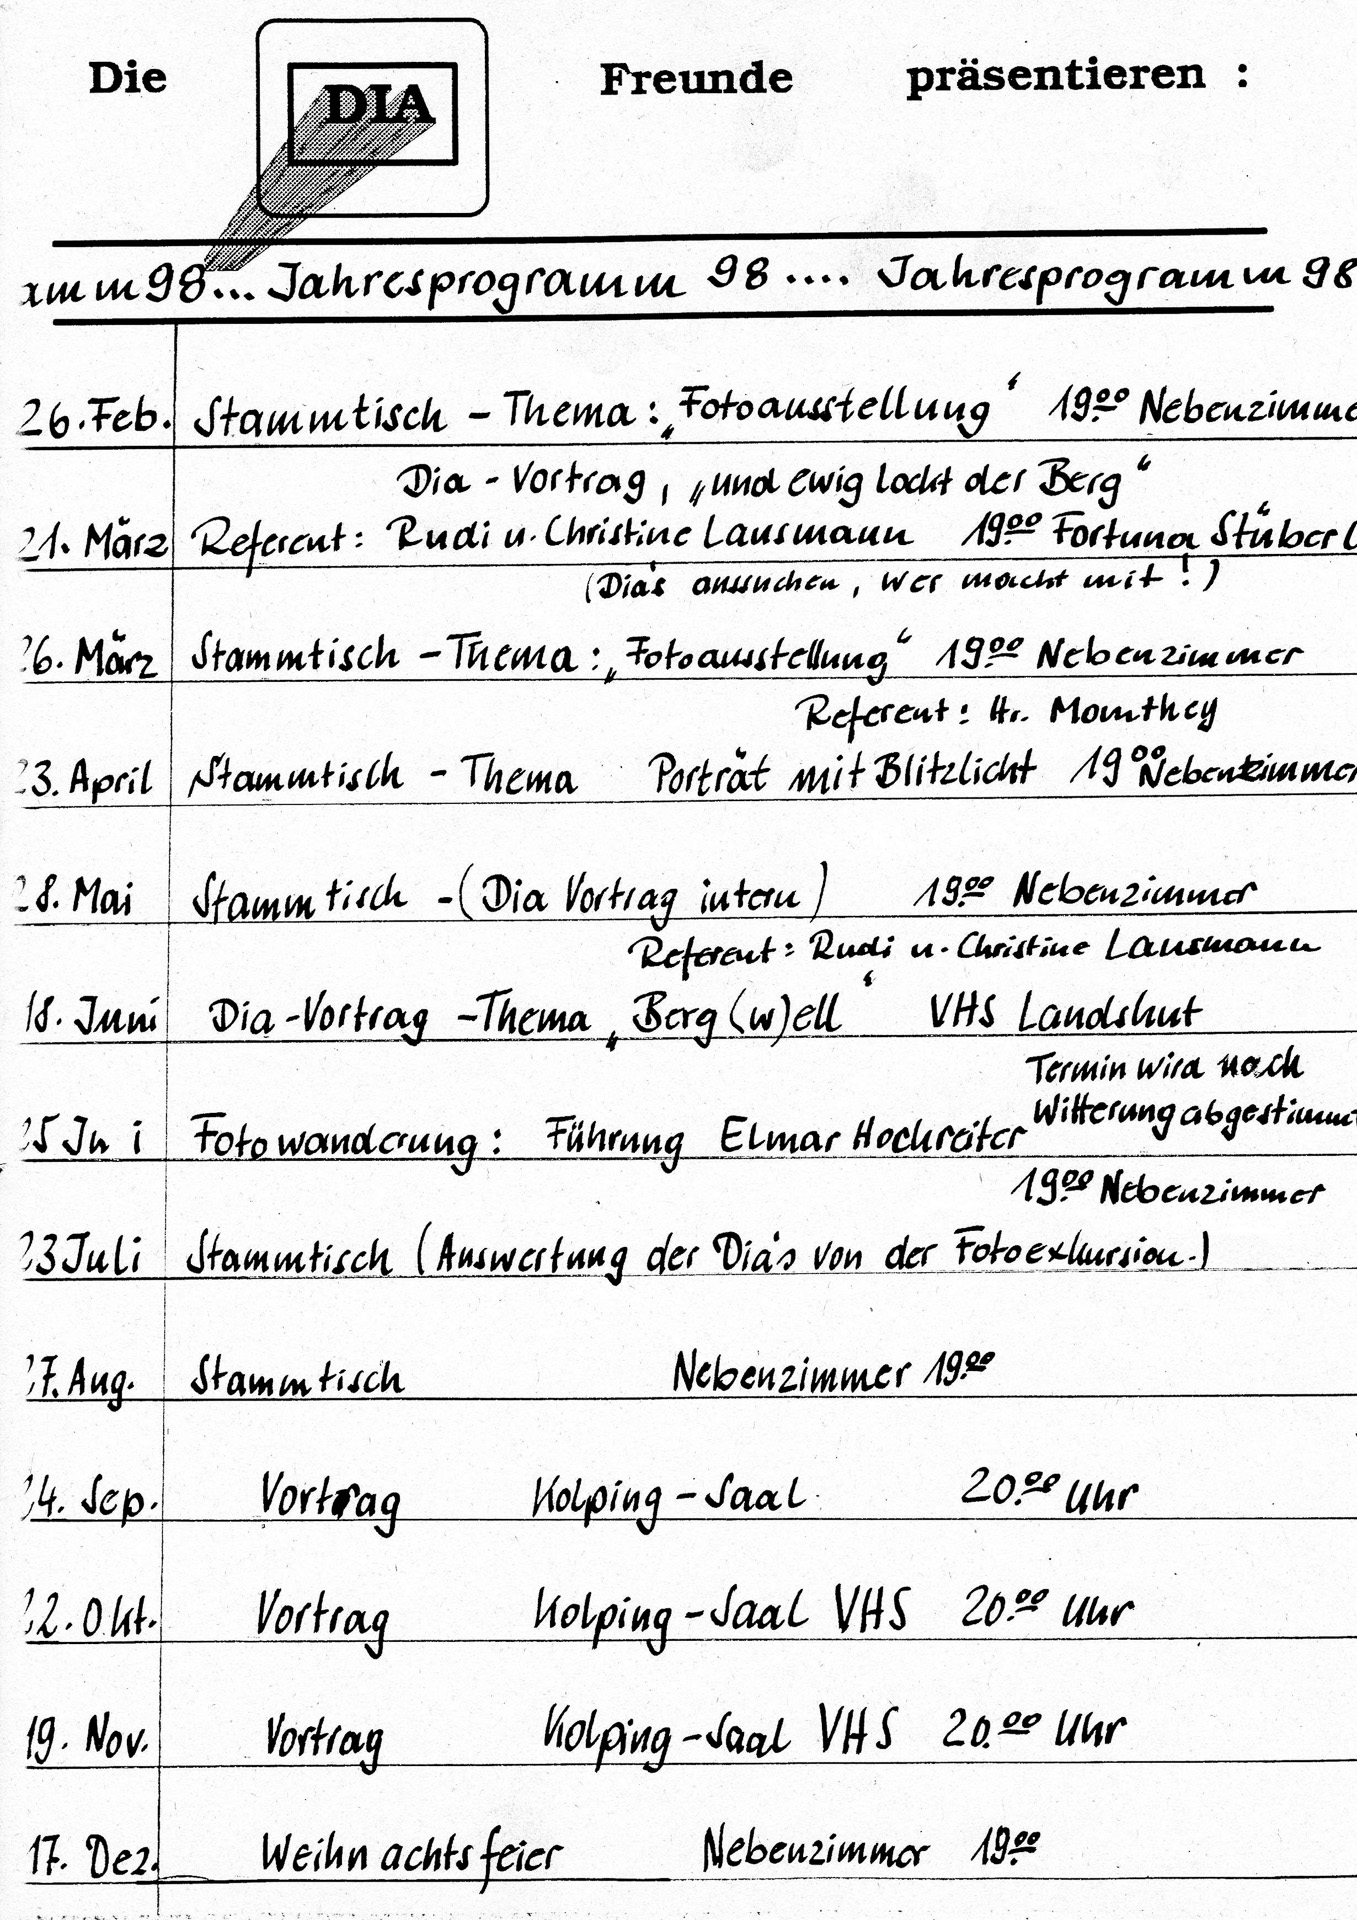 Die DIA Freunde präsentieren :
mm 98... Jahresprogramm 98 .... Jahresprogramm 98
26. Feb. Stammtisch - Thema: „Fotoausstellung“ 19.00 Nebenzimme
Dia - Vortrag, „und ewig lockt der Berg“
21. März Referent: Rudi u. Christine Lausmann 19.00 Fortuna Stüberl
(Dia's aussuchen, wer macht mit!)
26. März Stammtisch - Thema: „Fotoausstellung“ 19.00 Nebenzimmer
Referent: Hr.
23. April Stammtisch - Thema Porträt mit Blitzlicht 19.00 Nebenzimmer
28. Mai Stammtisch - (Dia Vortrag intern) 19.00 Nebenzimmer
Referent: Rudi u. Christine Lausmann
18. Juni Dia-Vortrag - Thema „Berg(w)ell“ VHS Landshut
Termin wird nach
Witterung abgestimmt
25 Ju i Fotowanderung: Führung Elmar Hochreiter
19.00 Nebenzimmer
23 Juli Stammtisch (Auswertung der Dia's von der Fotoexkursion.)
27. Aug. Stammtisch Nebenzimmer 19.00
24. Sep. Vortrag Kolping-Saal 20.00 Uhr
22. Okt. Vortrag Kolping-Saal VHS 20.00 Uhr
19. Nov. Vortrag Kolping-Saal VHS 20.00 Uhr
17. Dez. Weihnachtsfeier Nebenzimmer 19.00